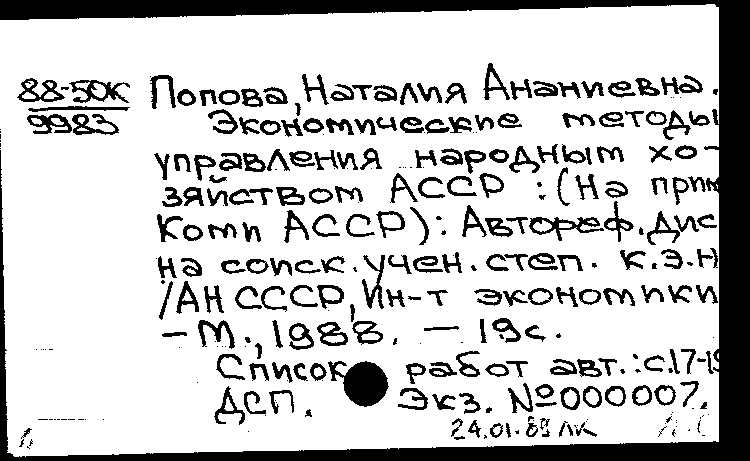 88-50К Попова, Наталия Ананиевна.
9983 Экономические методы
управления народным хо-
зяйством АССР : (На прим
Коми АССР) : Автореф. дис
на соиск. учен. степ. к.э.н
/АН СССР, Ин-т экономики
- М., 1988. - 19 с.
Список работ авт.: с.17-19
ДСП. Экз. №000007.
24.01.89 ЛК